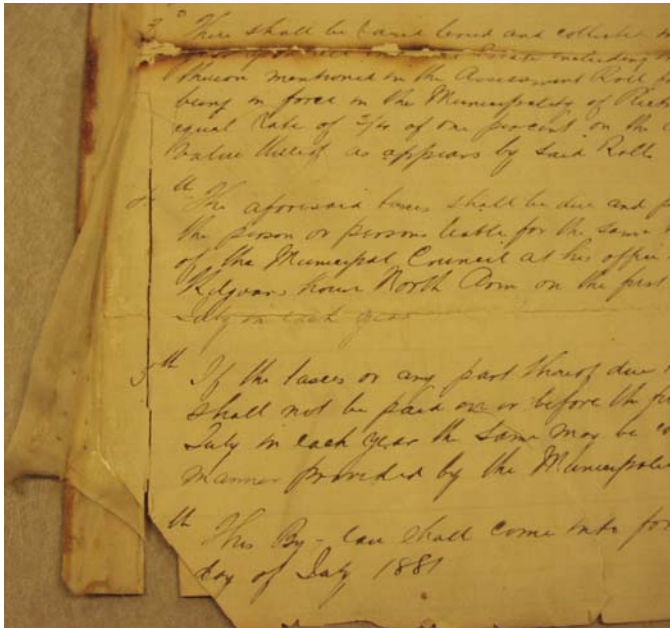 3 d There shall be raised levied and collected
Estate including
thereon mentioned in the Assessment Roll
being in force in the Municipality of
equal rate of 3/4 of one per cent on the
value thereof as appears by said Roll
th The aforesaid taxes shall be due and
the person or persons liable for the same
of the Municipal Council at his office
house North Arm on the first
July in each year
5th If the taxes or any part thereof due
shall not be paid on or before the
July in each year the same may be
manner provided by the
th This By-law shall come into
day of July 1881